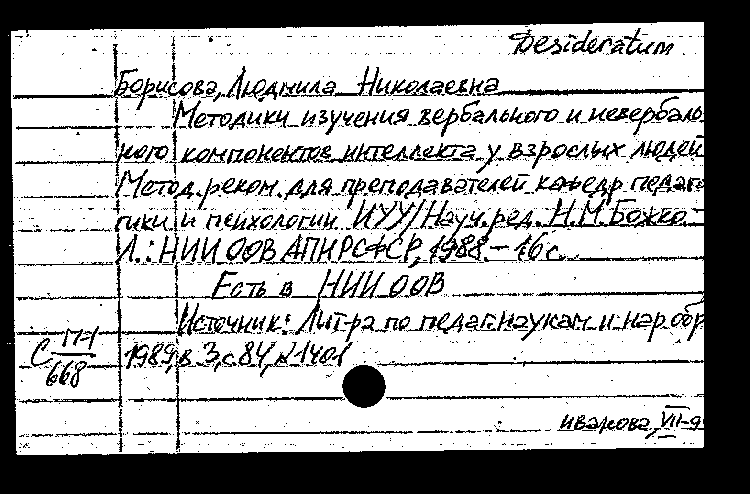 Desideratum
Борисова, Людмила Николаевна
Методики изучения вербального и невербаль
ного компонентов интеллекта у взрослых людей
Метод. реком. для преподавателей кафедр педаго
гики и психологии ИУУ/Науч. ред. Н.М. Божко. -
Л.: НИИ ООВ АПН РСФСР, 1988. - 16 с.
Есть в НИИ ООВ
Источник: Лит-ра по педаг. наукам и нар обр
С П-1/668 1989, в 3, с 84, №1401
Иванова, VII-9